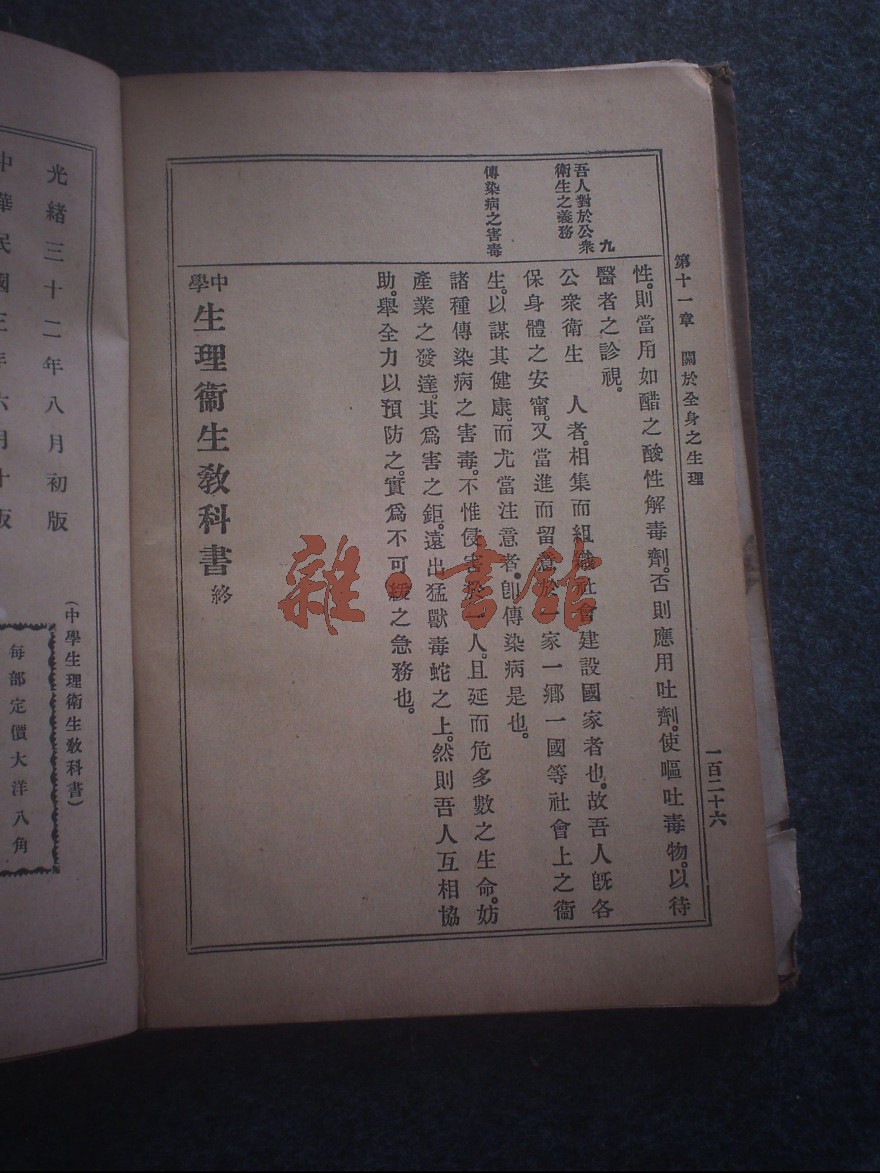 第十一章 關於全身之生理
一百二十六
九
吾人對於公衆
衛生之義務
傳染病之害毒
性。則當用如醋之酸性解毒劑。否則應用吐劑。使嘔吐毒物。以待
醫者之診視。
公衆衛生 人者。相集而組織社會建設國家者也。故吾人旣各
保身體之安甯。又當進而留意於一家一鄉一國等社會上之衞
生。以謀其健康。而尤當注意者。卽傳染病是也。
諸種傳染病之害毒。不惟侵害於一人。且延而危多數之生命。妨
產業之發達。其爲害之鉅。遠出猛獸毒蛇之上。然則吾人互相協
助。舉全力以預防之。實爲不可緩之急務也。
中學 生理衞生敎科書 終
(中學生理衛生敎科書)
每部定價大洋八角
光緒三十二年八月初版
中華民國三年六月十版
雜·書館